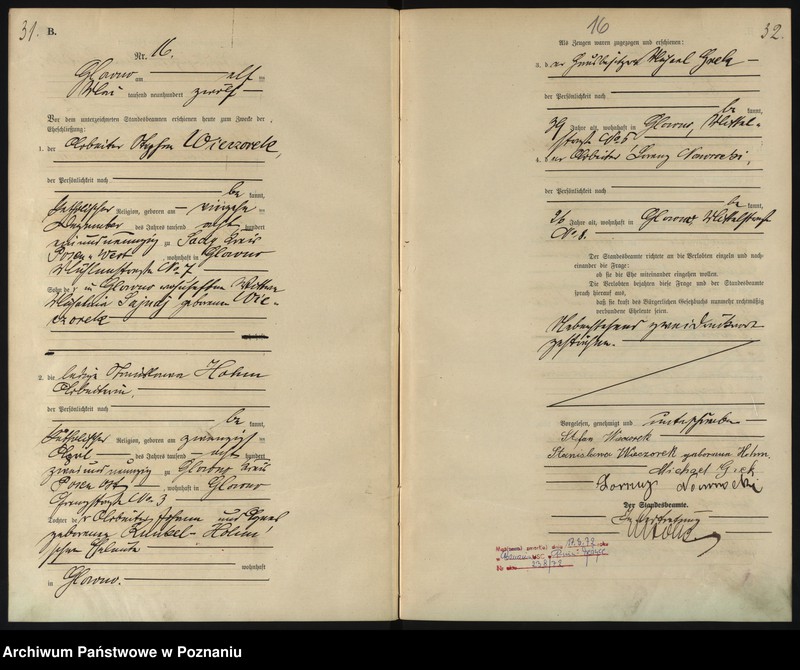 31. B.
Nr. 16.
Glowno am elf ten
Mai tausend neunhundert zwölf
Vor dem unterzeichneten Standesbeamten erschienen heute zum Zweck der
Eheschließung:
1. der Arbeiter Stephan Wieczorek,
der Persönlichkeit nach
be kannt,
katholischer Religion, geboren am
Dezember des Jahres tausend acht hundert
zu Sady Kreis
Posen-West, wohnhaft in Glowno
No 7
Sohn der in Glowno wohnhaften
geborenen Wie-
czorek
2. die ledige Stanislawa Holm
Arbeiterin,
der Persönlichkeit nach
be kannt,
katholischer Religion, geboren am zwanzigsten
April des Jahres tausend acht hundert
zweiundneunzig zu Glowno Kreis
Posen Ost, wohnhaft in Glowno
No 3
Tochter der Arbeiter und Agnes
geborene Kunkel-Holm'
schen Eheleute
wohnhaft
in Glowno.
16 32.
Als Zeugen waren zugezogen und erschienen:
3. der Hausbesitzer Michael
der Persönlichkeit nach
be kannt,
39 Jahre alt, wohnhaft in Glowno, Mittel-
straße No 5
4. der Arbeiter Lorenz Nawrocki,
der Persönlichkeit nach
be kannt,
26 Jahre alt, wohnhaft in Glowno, Mittelstraße
No 8.
Der Standesbeamte richtete an die Verlobten einzeln und nach-
einander die Frage:
ob sie die Ehe miteinander eingehen wollen.
Die Verlobten bejahten diese Frage und der Standesbeamte
sprach hierauf aus,
daß sie kraft des Bürgerlichen Gesetzbuchs nunmehr rechtmäßig
verbundene Eheleute seien.
Nebenstehend zwei Druckworte
gestrichen.
Vorgelesen, genehmigt und unterschrieben
Stefan Wieczorek
Stanislawa Wieczorek geborene Holm.
Michael
Lorenz Nawrocki
Der Standesbeamte.
In Vertretung
Archiwum Państwowe w Poznaniu